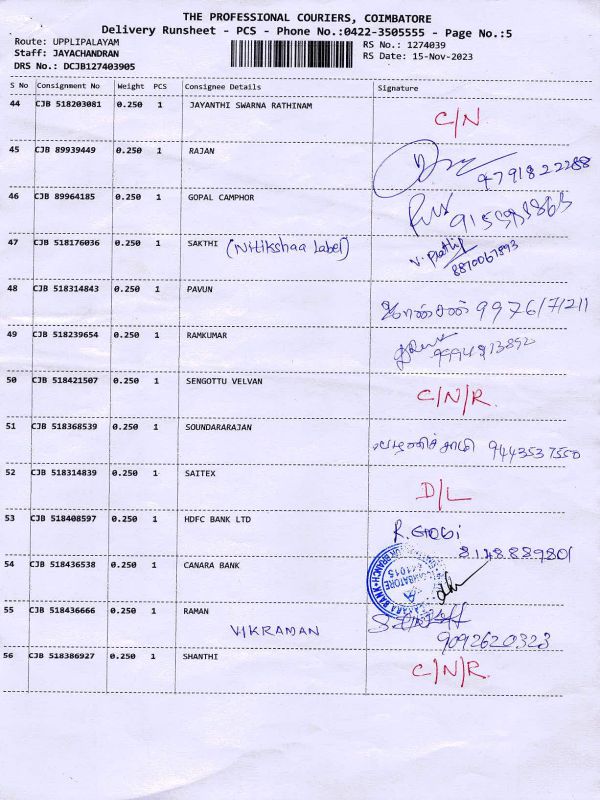 THE PROFESSIONAL COURIERS, COIMBATORE
Delivery Runsheet - PCS - Phone No.:0422-3505555 - Page No.:5
Route: UPPLIPALAYAM RS No.: 1274039
Staff: JAYACHANDRAN RS Date: 15-Nov-2023
DRS No.: DCJB127403905
S No Consignment No Weight PCS Consignee Details Signature
44 CJB 518203081 0.250 1 JAYANTHI SWARNA RATHINAM C/N
45 CJB 89939449 0.250 1 RAJAN 9791822288
46 CJB 89964185 0.250 1 GOPAL CAMPHOR
47 CJB 518176036 0.250 1 SAKTHI (Nitikshaa Label) 8870067893
48 CJB 518314843 0.250 1 PAVUN 9976171211
49 CJB 518239654 0.250 1 RAMKUMAR
50 CJB 518421507 0.250 1 SENGOTTU VELVAN C/N/R.
51 CJB 518368539 0.250 1 SOUNDARARAJAN பழனிச்சாமி 9443537550
52 CJB 518314839 0.250 1 SAITEX D/L
53 CJB 518408597 0.250 1 HDFC BANK LTD R. Gobi
8148889801
54 CJB 518436538 0.250 1 CANARA BANK
55 CJB 518436666 0.250 1 RAMAN
VIKRAMAN 9092620323
56 CJB 518386927 0.250 1 SHANTHI C/N/R.